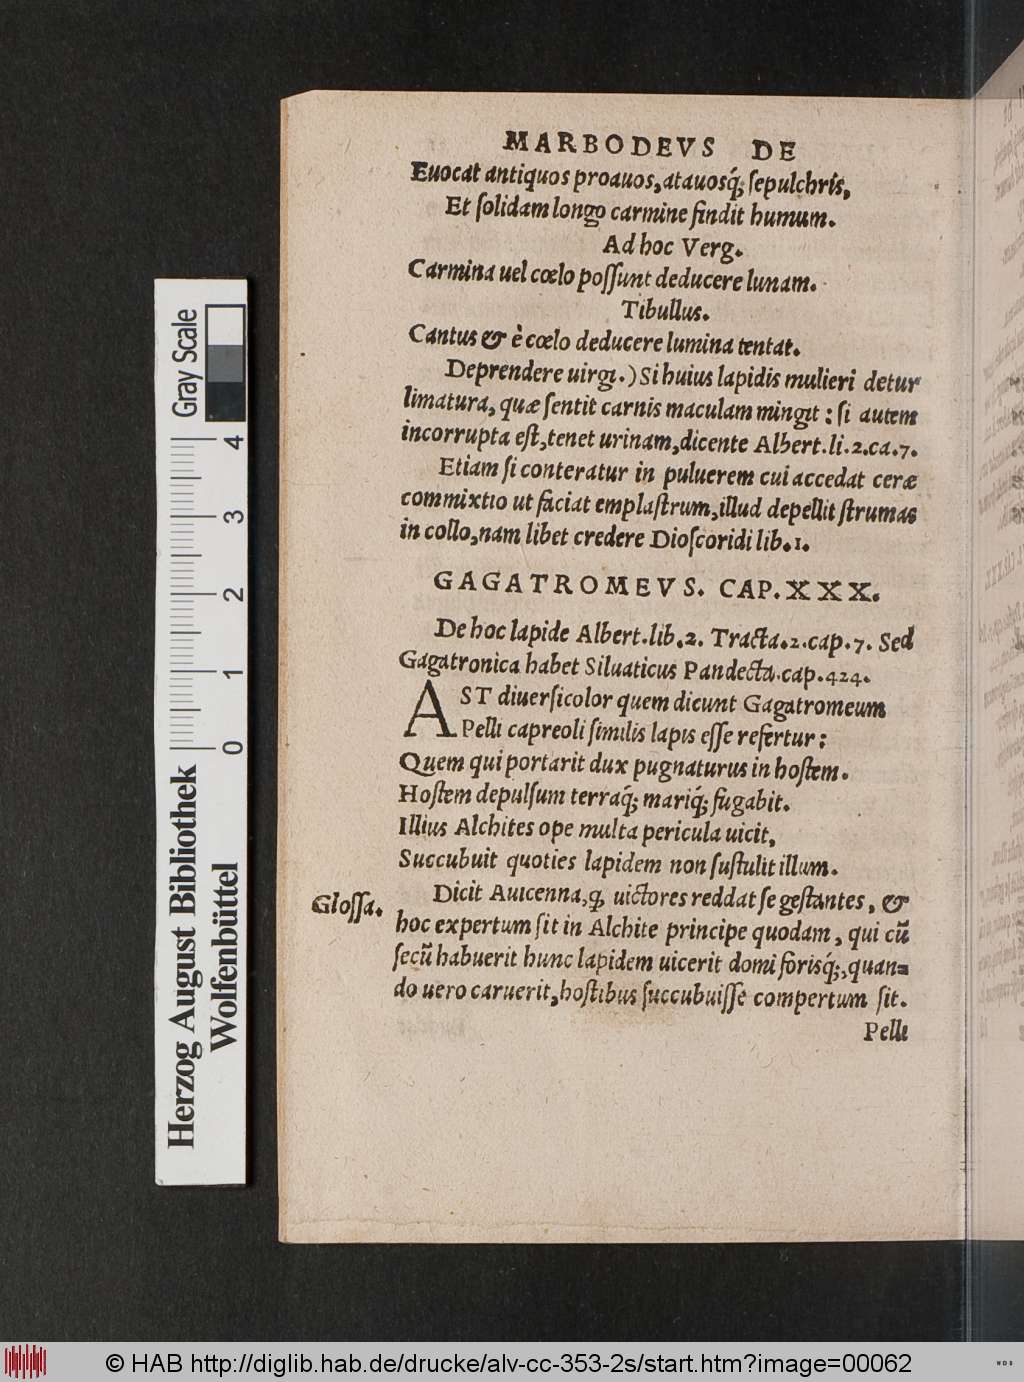 MARBODEVS DE
Euocat antiquos proauos, atauosq́; ſepulchris,
Et ſolidam longo carmine findit humum.
Ad hoc Verg.
Carmina uel cœlo poſſunt deducere lunam.
Tibullus.
Cantus & è cœlo deducere lumina tentat.
Deprendere uirgi.) Si huius lapidis mulieri detur
limatura, quæ ſentit carnis maculam mingit: ſi autem
incorrupta eſt, tenet urinam, dicente Albert. li. 2. ca. 7.
Etiam ſi conteratur in puluerem cui accedat ceræ
commixtio ut faciat emplaſtrum, illud depellit ſtrumas
in collo, nam libet credere Dioſcoridi lib. 1.
GAGATROMEVS. CAP. XXX.
De hoc lapide Albert. lib. 2. Tracta. 2. cap. 7. Sed
Gagatronica habet Siluaticus Pandecta. cap. 424.
AST diuerſicolor quem dicunt Gagatromeum
Pelli capreoli ſimilis lapis eſſe refertur:
Quem qui portarit dux pugnaturus in hoſtem.
Hoſtem depulſum terraq́; mariq́; fugabit.
Illius Alchites ope multa pericula uicit,
Succubuit quoties lapidem non ſuſtulit illum.
Gloſſa. Dicit Auicenna, ꝙ uictores reddat ſe geſtantes, &
hoc expertum ſit in Alchite principe quodam, qui cũ
ſecũ habuerit hunc lapidem uicerit domi foriſq́;, quan=
do uero caruerit, hoſtibus ſuccubuiſſe compertum ſit.
Pelli
Gray Scale
4
3
2
1
0
Herzog August Bibliothek
Wolfenbüttel
© HAB http://diglib.hab.de/drucke/alv-cc-353-2s/start.htm?image=00062